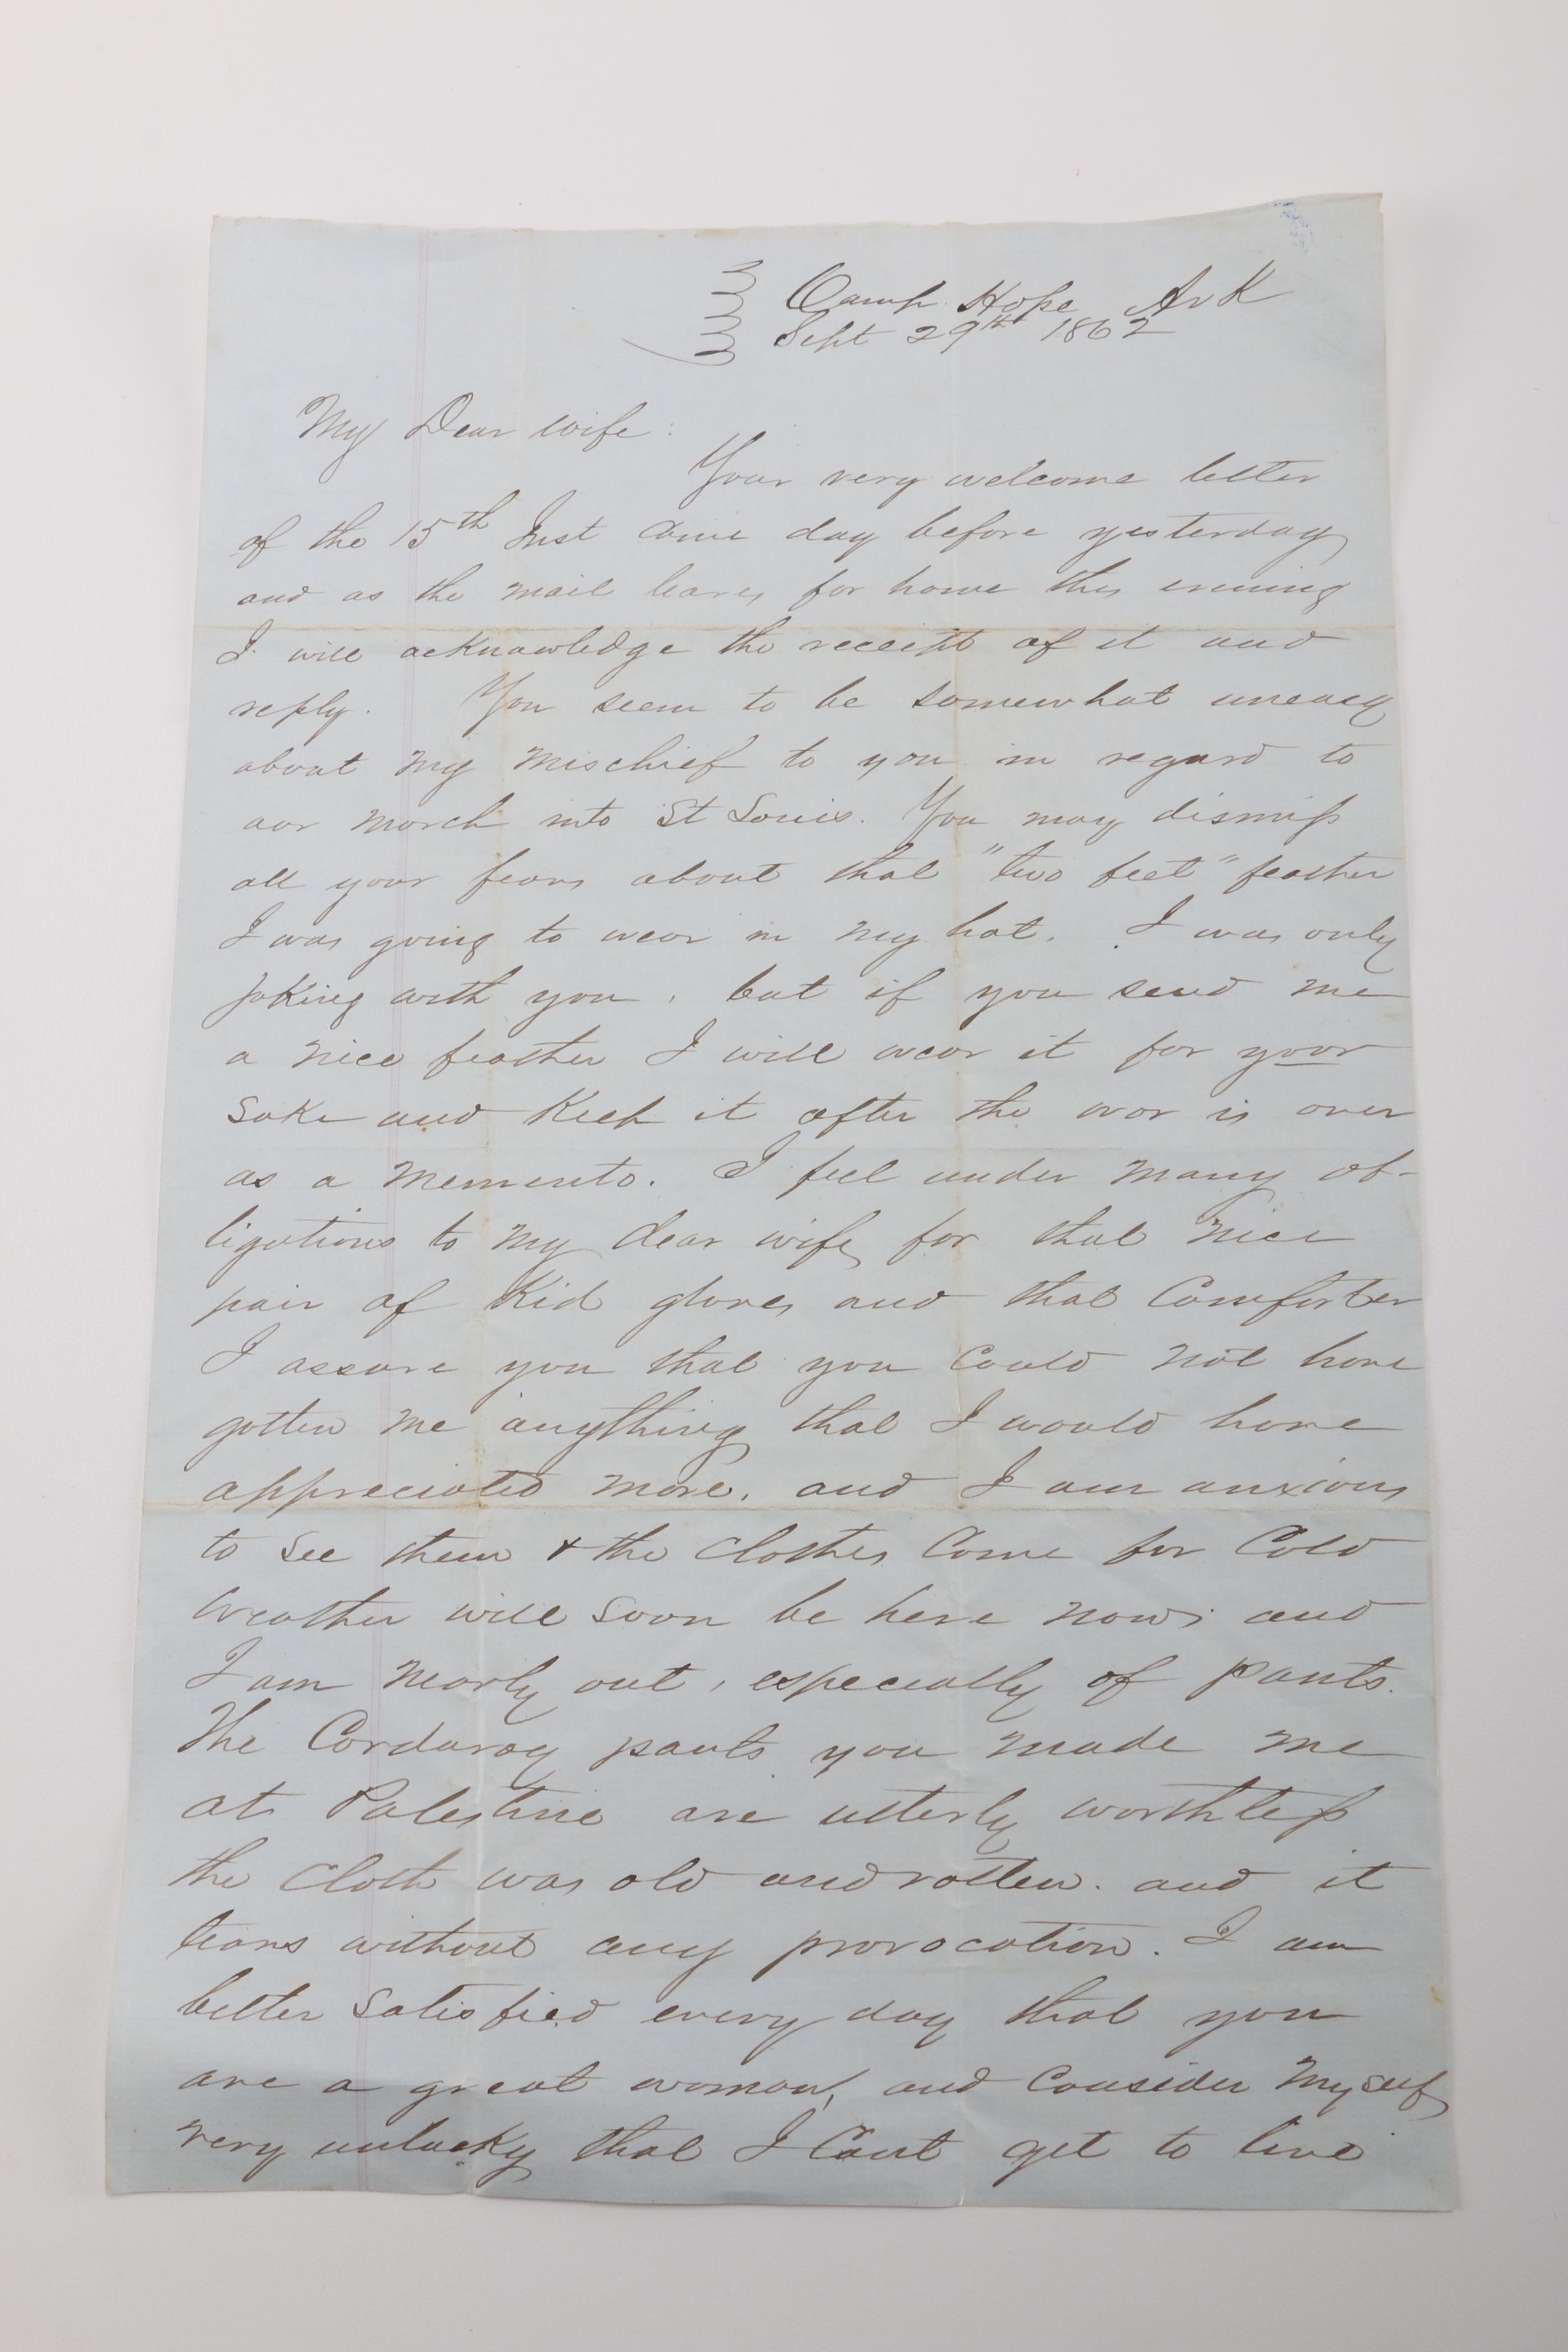 Camp Hope Ark
Sept 29th 1862
My Dear wife:
Your very welcome letter
of the 15th Inst came day before yesterday
and as the mail leaves for home this evening
I will acknowledge the receipt of it and
reply. You seem to be somewhat uneasy
about my mischief to you in regard to
our march into St Louis. You may dismiss
all your fears about that "two feet" feather
I was going to wear in my hat. I was only
joking with you, but if you send me
a nice feather I will wear it for your
sake and keep it after the war is over
as a memento. I feel under many ob-
ligations to my dear wife for that nice
pair of Kid gloves and that Comforter
I assure you that you could not have
gotten me anything that I would have
appreciated more, and I am anxious
to see them & the clothes come for Cold
weather will soon be here now; and
I am nearly out, especially of pants.
The Corduroy pants you made me
at Palestine are utterly worthless
the cloth was old and rotten. and it
tears without any provocation. I am
better satisfied every day that you
are a great woman, and consider myself
very unlucky that I Cant get to live